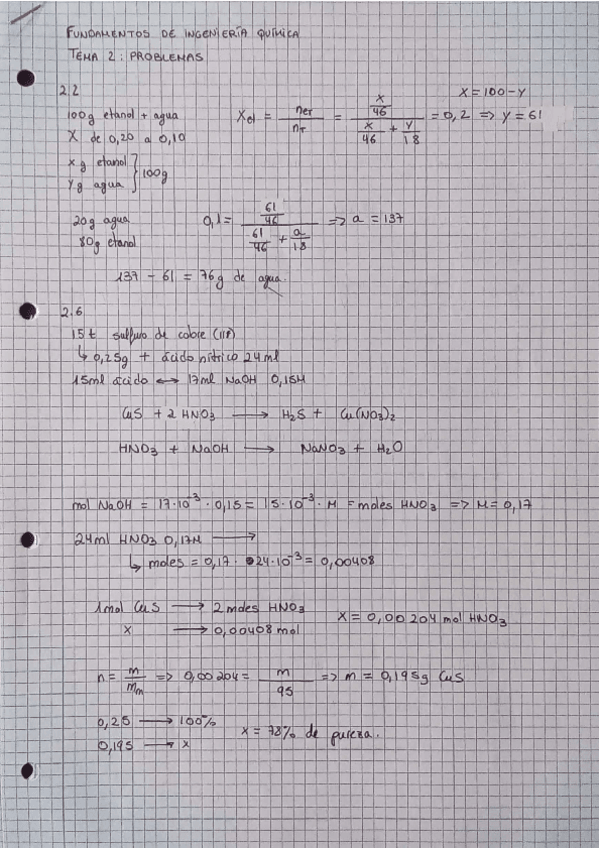 FUNDAMENTOS DE INGENIERÍA QUÍMICA
TEMA 2: PROBLEMAS
2.2
100g etanol + agua
X de 0,20 a 0,10
x g etanol
y g agua } 100g
X = 100 - Y
Xet = nET / nT = (x/46) / (x/46 + y/18) = 0,2 => y = 61
20g agua
80g etanol
0,1 = (61/46) / (61/46 + a/18) => a = 137
137 - 61 = 76g de agua.
2.6
15 t sulfuro de cobre (II)
↳ 0,25g + ácido nítrico 24ml
15ml ácido ↔ 17ml NaOH 0,15M
CuS + 2 HNO3 → H2S + Cu(NO3)2
HNO3 + NaOH → NaNO3 + H2O
mol NaOH = 17·10^-3 · 0,15 = 15·10^-3 · M = moles HNO3 => M = 0,17
24ml HNO3 0,17M →
↳ moles = 0,17 · 24·10^-3 = 0,00408
1mol CuS → 2 moles HNO3
x → 0,00408 mol
x = 0,00204 mol HNO3
n = m / Mm => 0,00204 = m / 95 => m = 0,195g CuS
0,25 → 100%
0,195 → x
x = 78% de pureza.